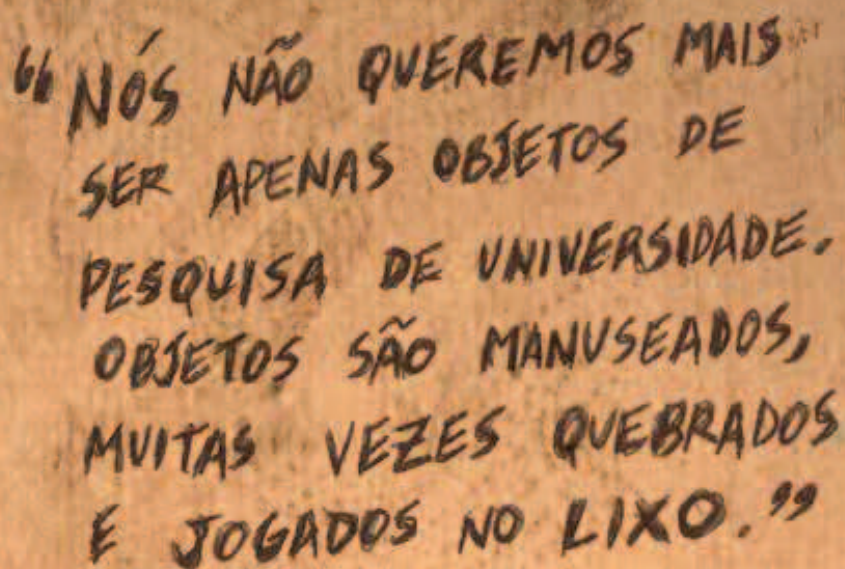 “NÓS NÃO QUEREMOS MAIS
SER APENAS OBJETOS DE
PESQUISA DE UNIVERSIDADE.
OBJETOS SÃO MANUSEADOS,
MUITAS VEZES QUEBRADOS
E JOGADOS NO LIXO.”